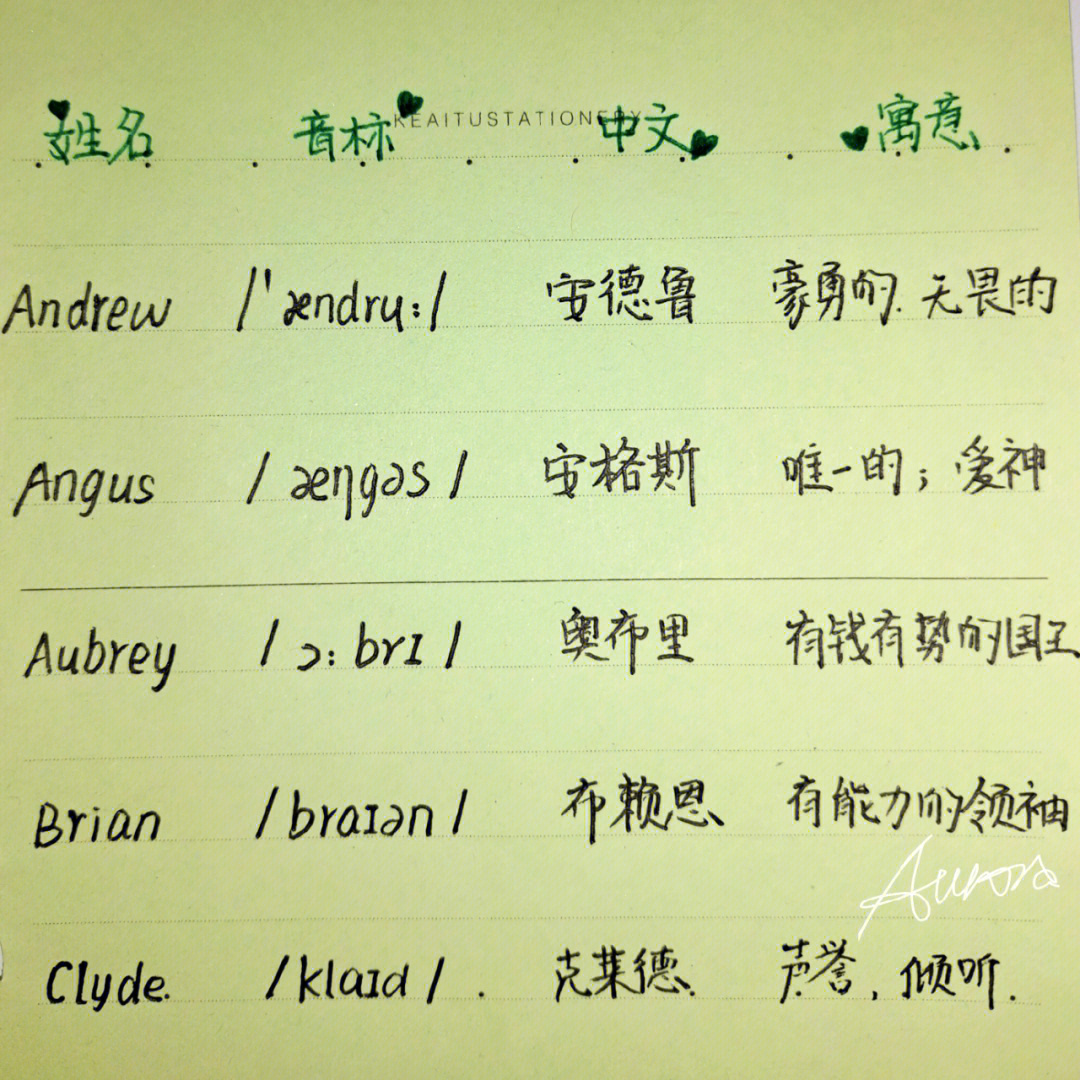 KEAITUSTATIONERY
姓名 音标 中文 寓意
Andrew /'ændru:/ 安德鲁 豪勇的.无畏的
Angus /æŋgəs/ 安格斯 唯一的；爱神
Aubrey /ɔ:brɪ/ 奥布里 有钱有势的国王
Brian /braɪən/ 布赖恩 有能力的领袖
Aurora
Clyde. /klaɪd/. 克莱德. 声誉，倾听.